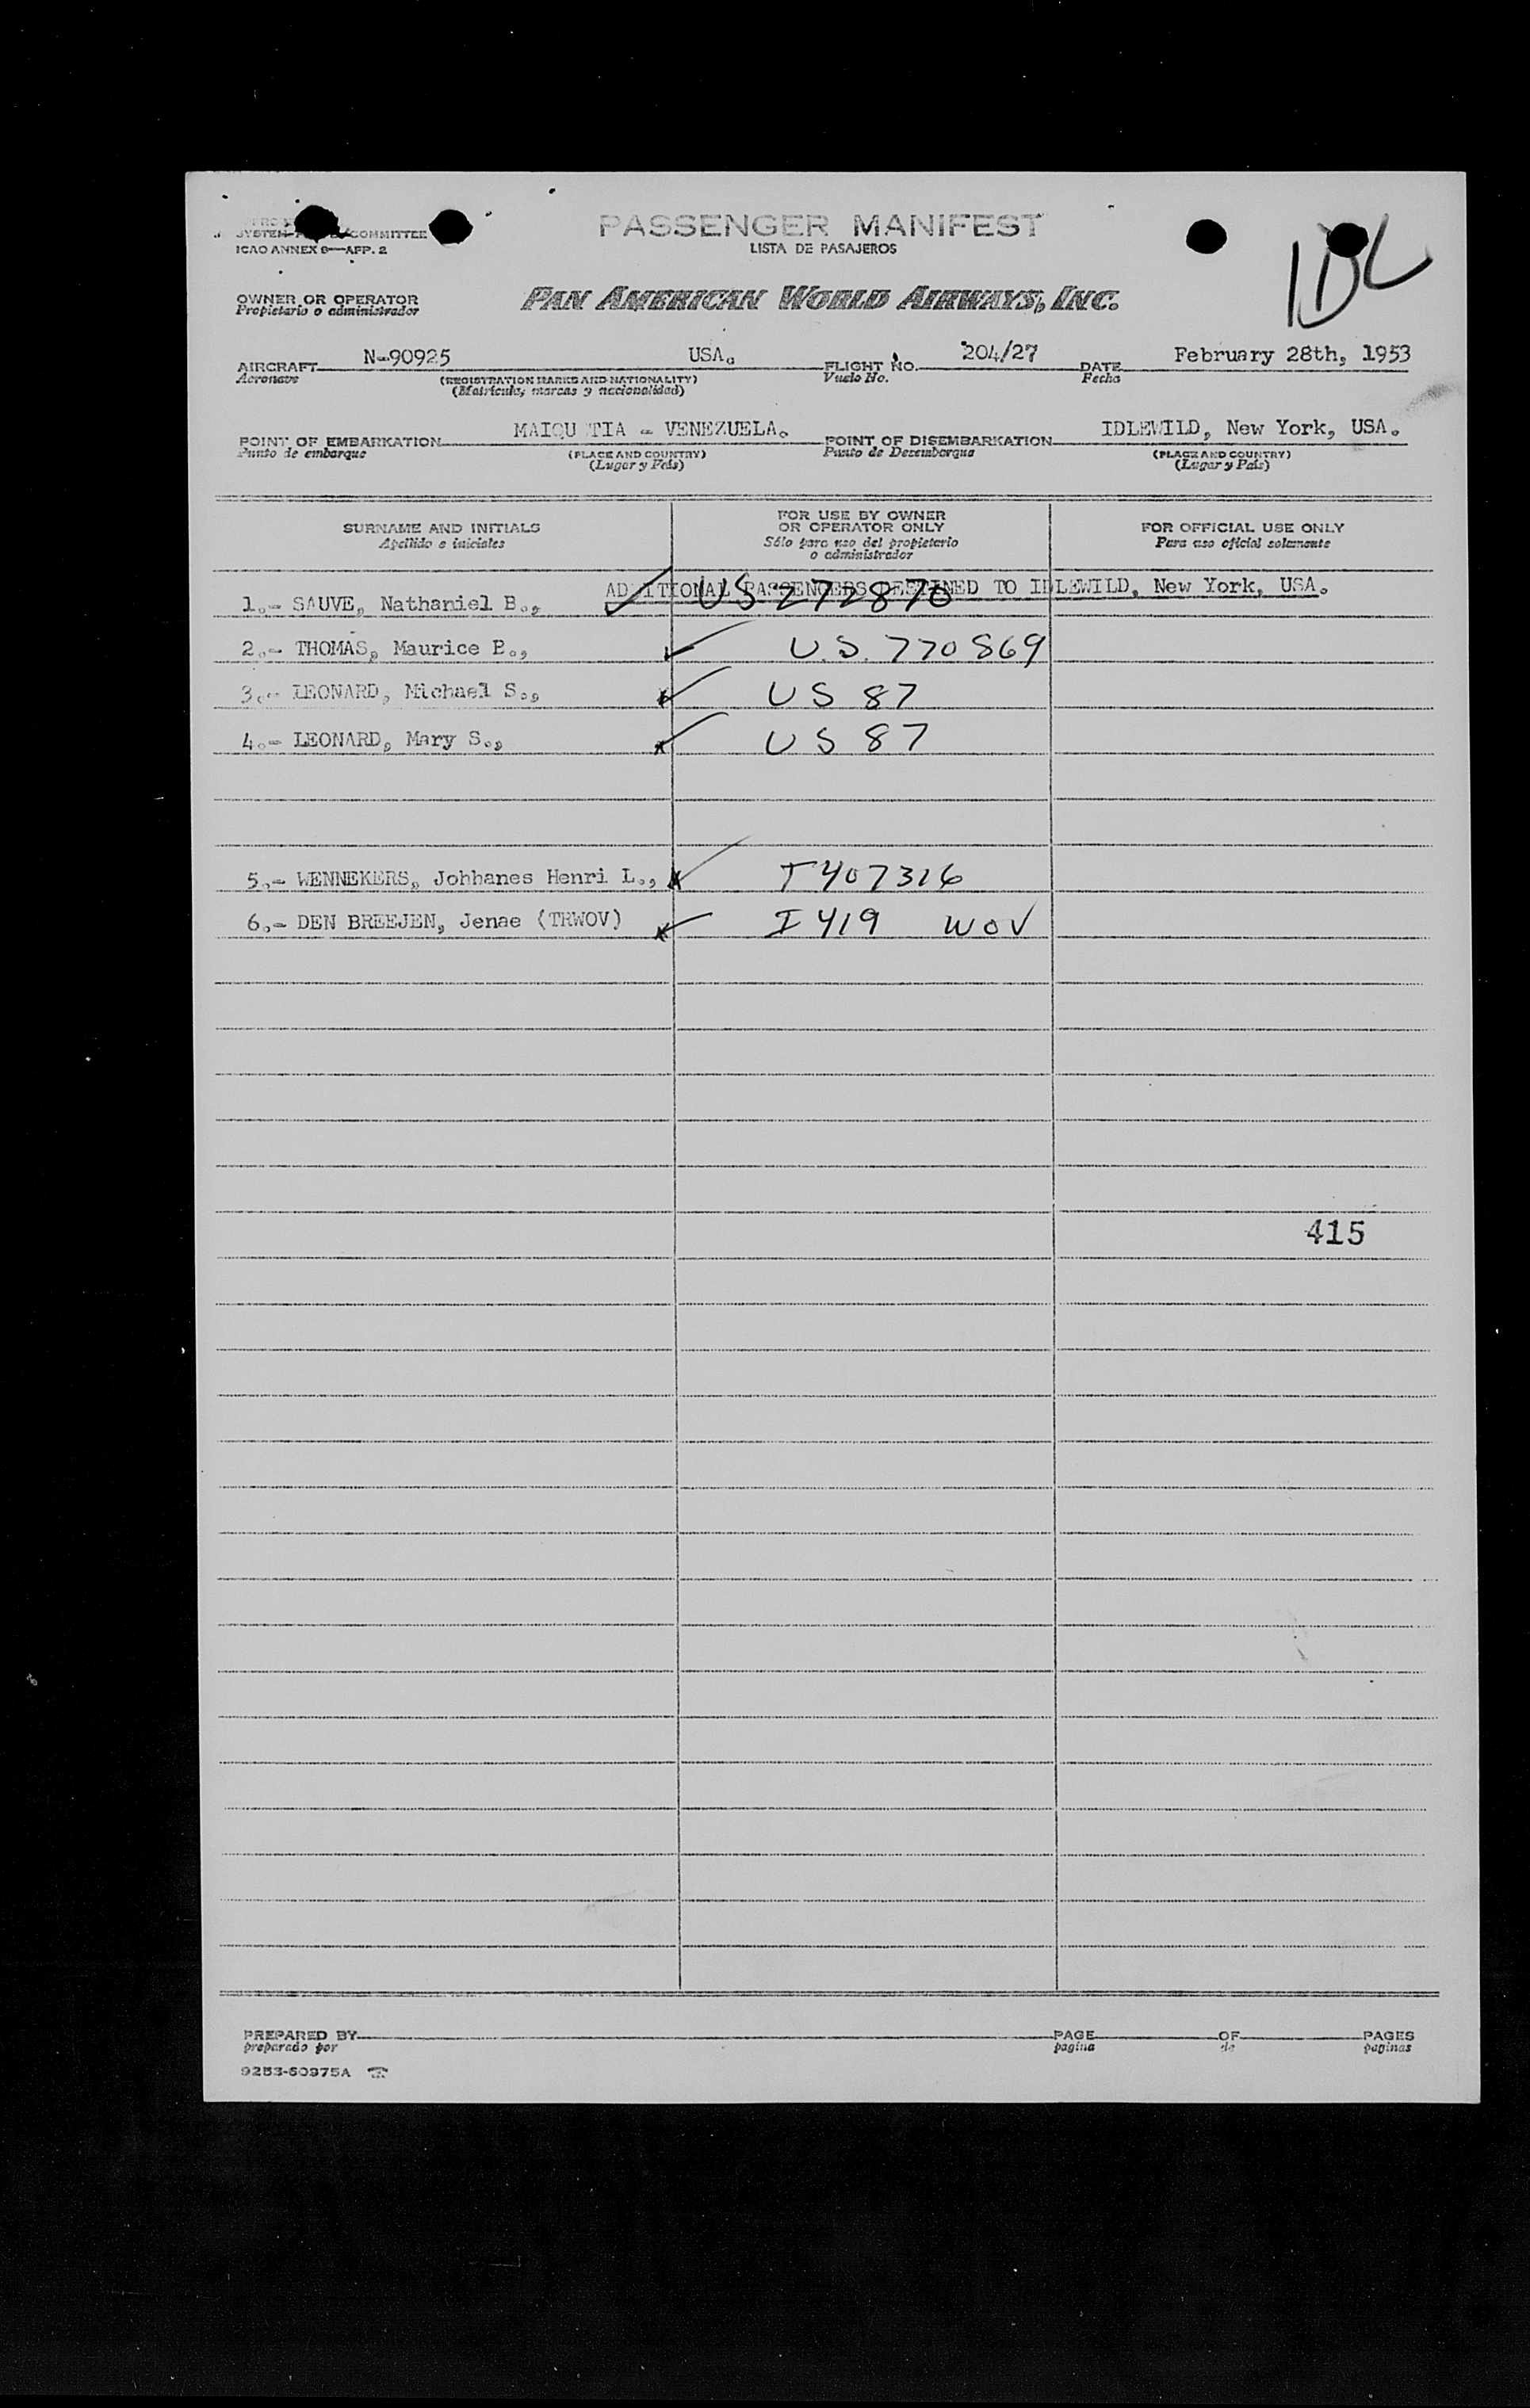 PASSENGER MANIFEST
LISTA DE PASAJEROS
COMMITTEE
ICAO ANNEX 9—APP. 2
IDL
OWNER OR OPERATOR
Propietario o administrador
PAN AMERICAN WORLD AIRWAYS, INC.
AIRCRAFT N-90925 USA. FLIGHT NO. 204/27 DATE February 28th, 1953
Aeronave (REGISTRATION MARKS AND NATIONALITY) Vuelo No. Fecha
(Matrícula, marcas y nacionalidad)
POINT OF EMBARKATION MAIQU TIA - VENEZUELA. POINT OF DISEMBARKATION IDLEWILD, New York, USA.
Punto de embarque (PLACE AND COUNTRY) Punto de Desembarque (PLACE AND COUNTRY)
(Lugar y País) (Lugar y País)
SURNAME AND INITIALS
Apellido e iniciales
FOR USE BY OWNER
OR OPERATOR ONLY
Sólo para uso del propietario
o administrador
FOR OFFICIAL USE ONLY
Para uso oficial solamente
ADDITIONAL PASSENGERS DESTINED TO IDLEWILD, New York, USA.
1.- SAUVE, Nathaniel B., US 272870
2.- THOMAS, Maurice P., U.S. 770869
3.- LEONARD, Michael S., US 87
4.- LEONARD, Mary S., US 87
5.- WENNEKERS, Johhanes Henri L., T407316
6.- DEN BREEJEN, Jenae (TRWOV) I 419 WOV
415
PREPARED BY PAGE OF PAGES
preparado por pagina de paginas
9253-60975A